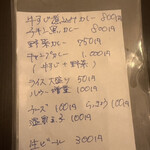 牛すじ煮込みカレー 800円
チキン黒カレー 800円
野菜カレー 750円
キャンプカレー 1,000円
(牛すじ+野菜)
ライス大盛り 50円
ルウー増量 100円
チーズ 100円 らっきょう 100円
温泉玉子 100円
生ビール 300円